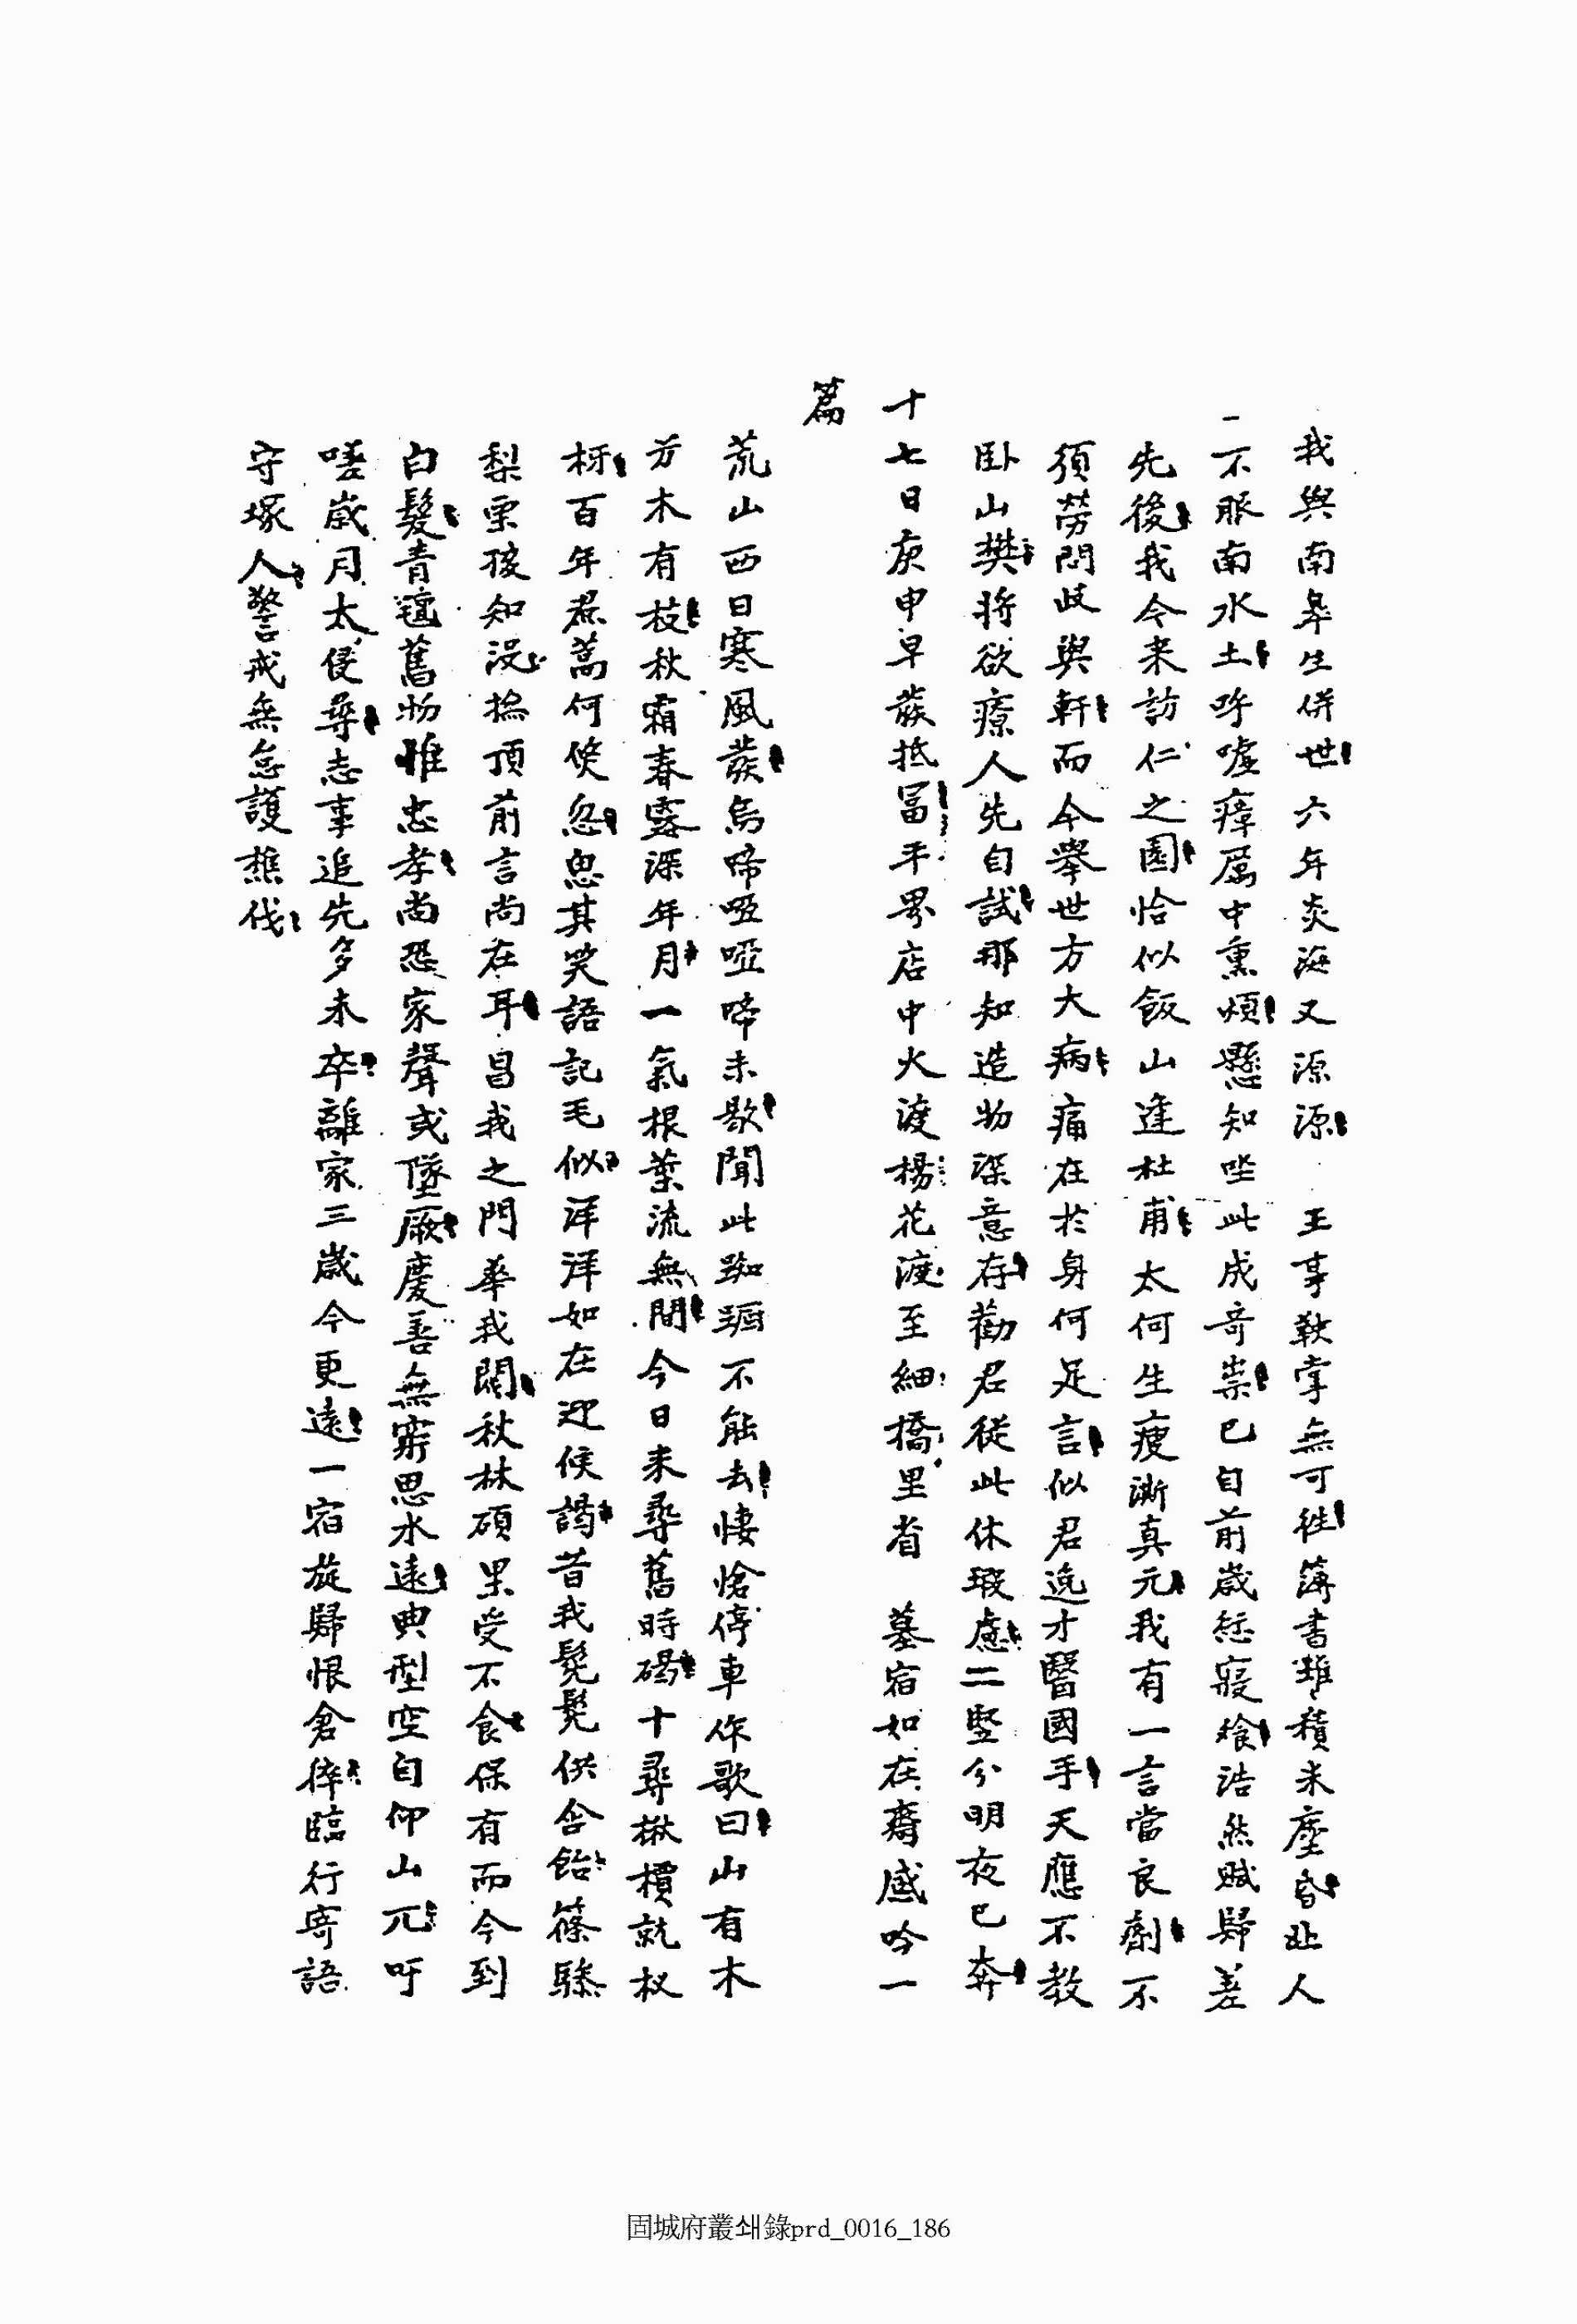 我與南皐生併世六年炎海又源源 王事鞅掌無可徃薄書堆積米塵昏北人
一不服南水土呼噓瘴厲中熏煩懸知坐此成奇祟已自前歲恁寢飧浩然賦歸差
先後我今來訪仁之園恰似飯山逢杜甫太何生瘦漸真元我有一言當良劑不
須勞問岐與軒而今擧世方大病痛在於身何足言似君逸才醫國手天應不教
臥山樊將欲療人先自試那知造物深意存勸君從此休瑕慮二竪分明夜已奔
十七日庚申早蕟抵冨平界店中火渡楊花渡至細橋里省 墓宿如在齋感吟一
篇
荒山西日寒風蕟烏啼啞啞啼未歇聞此踟躕不能去悽愴停車作歌曰山有木
芳木有枝秋霜春露深年月一氣根葉流無間今日来尋舊時碣十尋楸檟就杈
枒百年焄蒿何倏忽思其笑語記毛似洋洋如在迎候謁昔我髧髦供含飴篠驂
梨栗孩知沒撫頂前言尚在耳昌我之門華我閥秋林碩果受不食保有而今到
白髮青氊舊物惟忠孝尚恐家聲或墜厥慶善無窮思水遠典型空自仰山兀吁
嗟歲月太侵尋志事追先多未卒離家三歲今更遠一宿旋歸恨倉倅臨行寄語
守塚人警戒無怠護樵伐
固城府叢쇄錄prd_0016_186